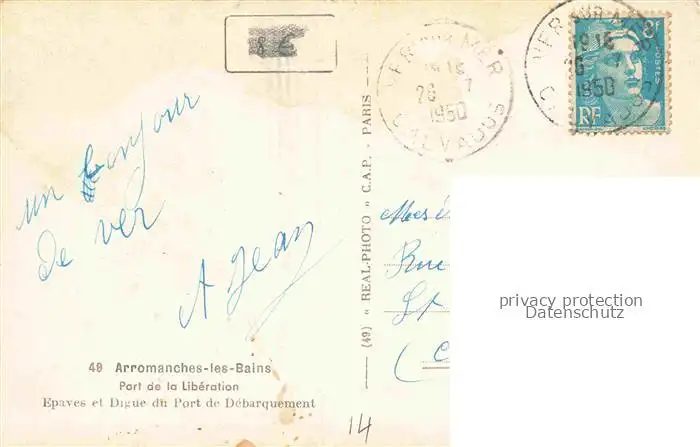 VER SUR MER
1915
26 -7
1950
CALVADOS
VER SUR MER
1915
26
1950
CALVADOS
8F
POSTES
RF
un bonjour
de ver
A Jean
(49) « REAL-PHOTO » C.A.P. - PARIS -
Rue
St
privacy protection
Datenschutz
49 Arromanches-les-Bains
Port de la Libération
Epaves et Digue du Port de Débarquement
14